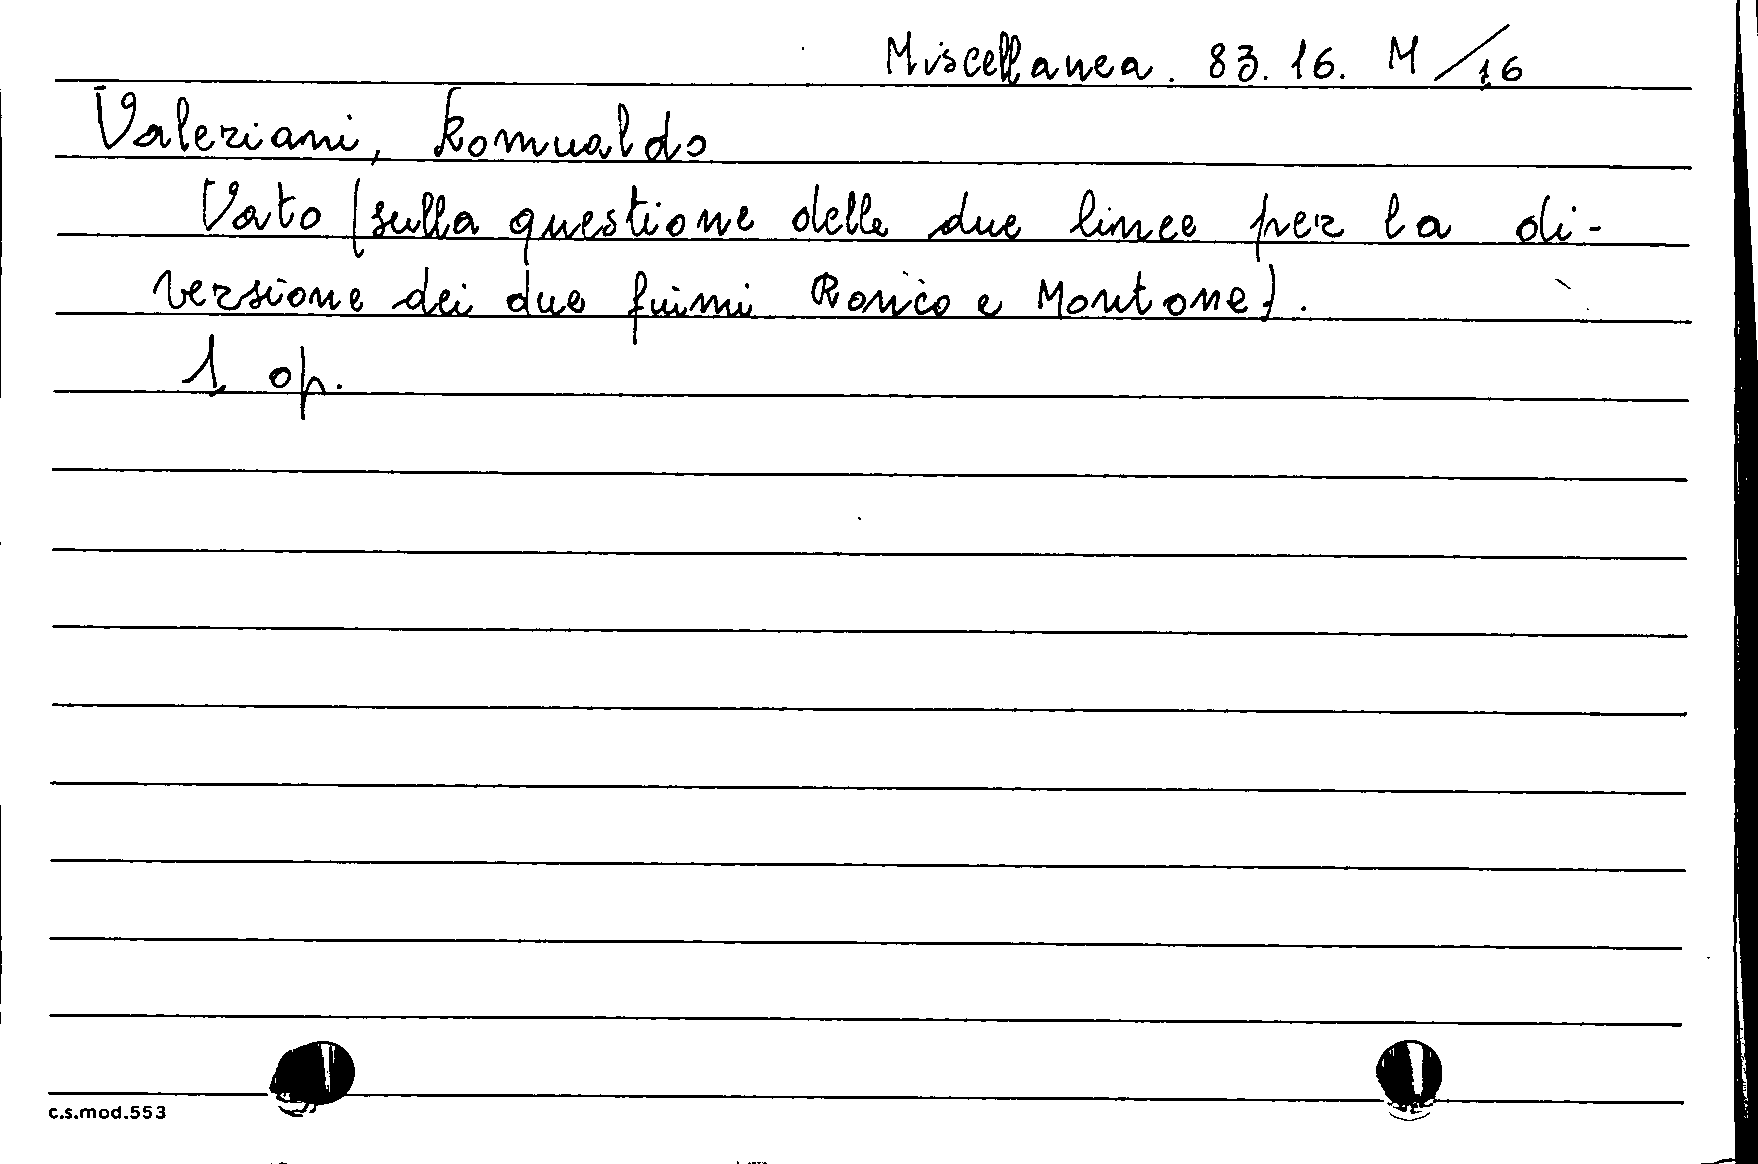 Miscellanea. 83.16. M/16
Valeriani, Romualdo
Voto (sulla questione delle due linee per la di-
versione dei due fiumi Ronco e Montone).
1 op.
c.s.mod.553